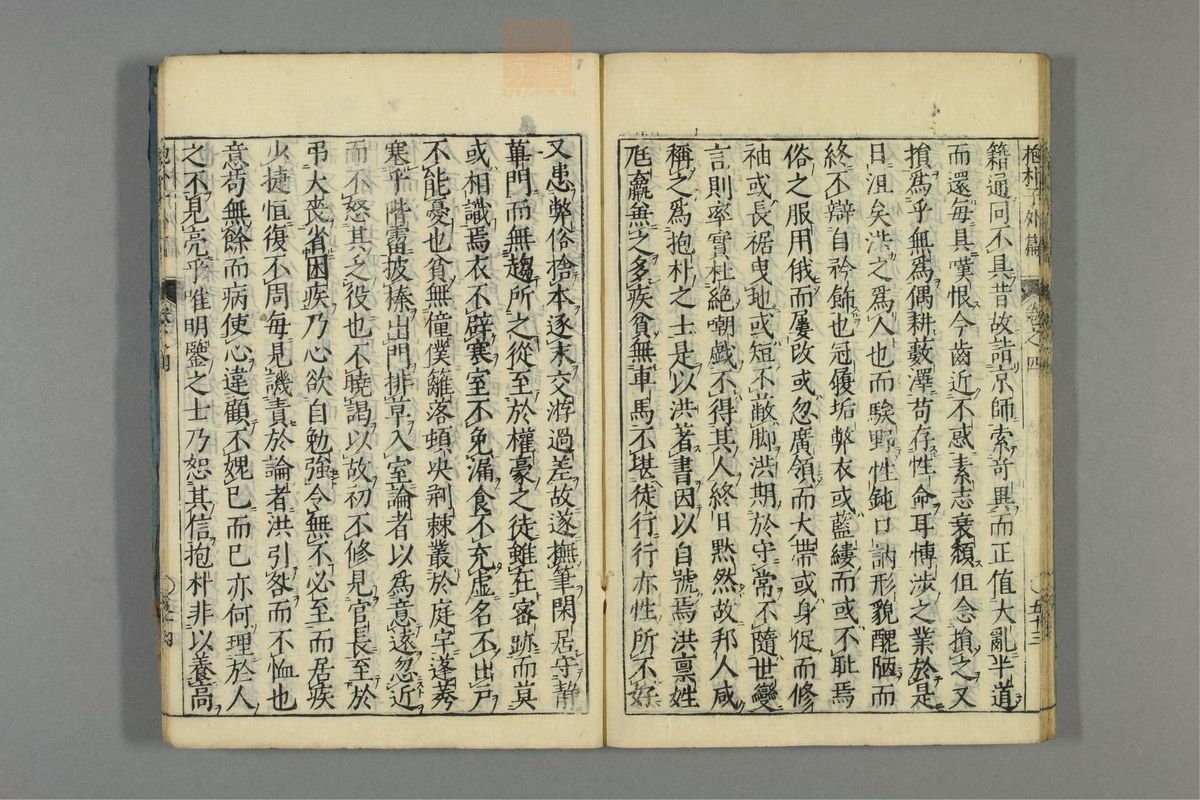 抱朴子外篇 卷之四 五十三
籍通同不具昔故詣京師索奇異而正值大亂半道
而還每具嘆恨今齒近不惑素志衰頹但念損之又
損爲乎無爲偶耕藪澤苟存性命耳博涉之業於是
日沮矣洪之爲人也而騃野性鈍口訥形貌醜陋而
終不辯自矜飾也冠履垢弊衣或藍縷而或不耻焉
俗之服用俄而屢改或忽廣領而大帶或身促而修
袖或長裾曳地或短不蔽脚洪期於守常不隨世變
言則率實杜絶嘲戲不得其人終日黙然故邦人咸
稱之爲抱朴之士是以洪著書因以自號焉洪禀姓
尫羸兼之多疾貧無車馬不堪徒行行亦性所不好
又患弊俗捨本逐末交游過差故遂撫筆閑居守静
蓽門而無趨所之從至於權豪之徒雖在密跡而莫
或相識焉衣不辟寒室不免漏食不充虚名不出戸
不能憂也貧無僮僕籬落頓决荆棘叢於庭宇蓬莠
塞乎階霤披榛出門排草入室論者以爲意遠忽近
而不恕其乏役也不曉謁以故初不修見官長至於
弔大喪省困疾乃心欲自勉強令無不必至而居疾
少捷恒復不周每見譏責於論者洪引咎而不恤也
意苟無餘而病使心違顧不媿巳而巳亦何理於人
之不見亮乎唯明鑒之士乃恕其信抱朴非以養高